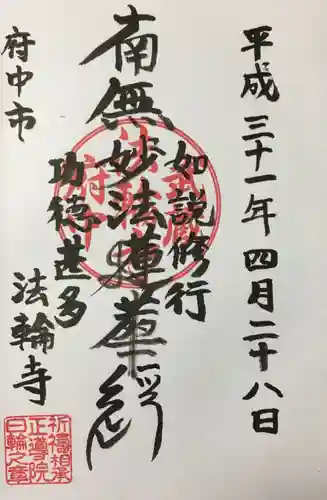 平成三十一年四月二十八日
如説修行
南無妙法蓮華経
功徳甚多
府中市
法輪寺
祈禱相承
正導院
日輪之章